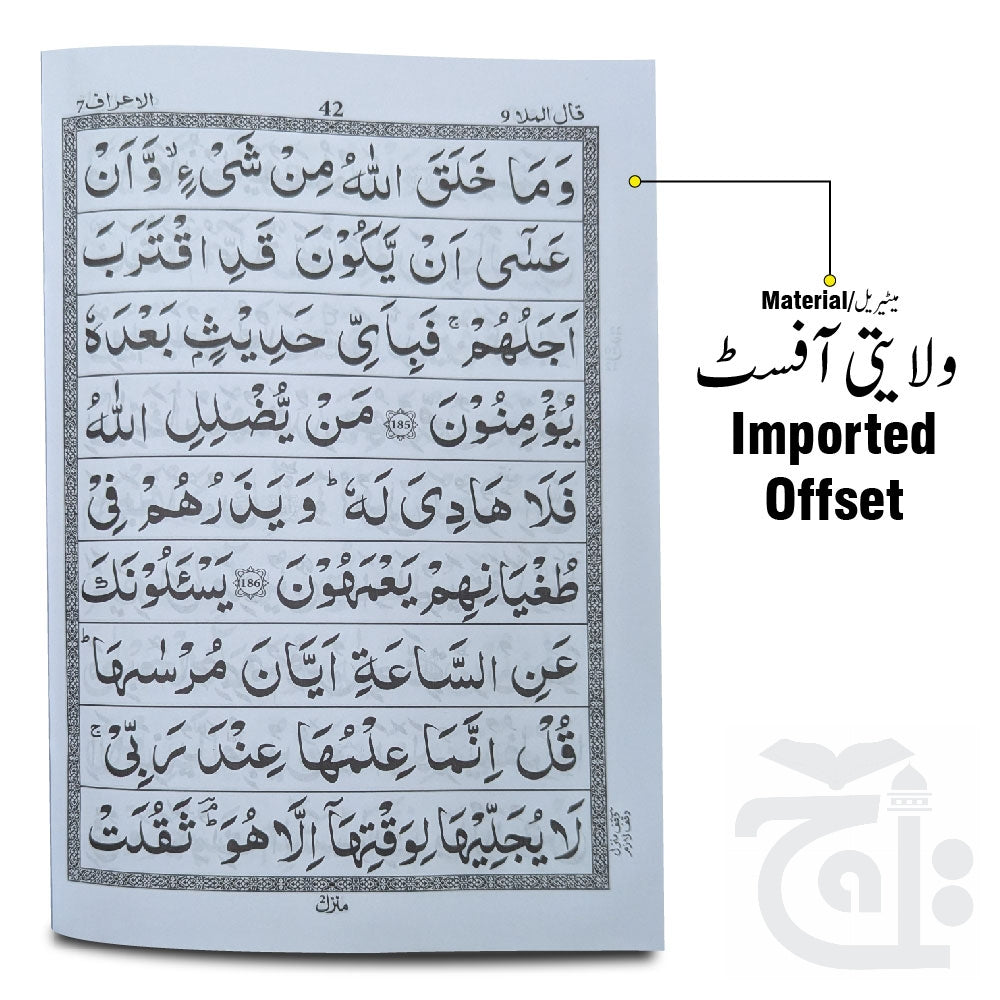 الاعراف 7
42
قال الملا 9
وَمَا خَلَقَ اللّٰهُ مِنْ شَیْءٍ ۙ وَّ اَنْ
عَسٰۤی اَنْ یَّكُوْنَ قَدِ اقْتَرَبَ
اَجَلُهُمْ ۚ فَبِاَیِّ حَدِیْثٍۭ بَعْدَهٗ
یُؤْمِنُوْنَ 185 مَنْ یُّضْلِلِ اللّٰهُ
فَلَا هَادِیَ لَهٗ ؕ وَ یَذَرُهُمْ فِیْ
طُغْیَانِهِمْ یَعْمَهُوْنَ 186 یَسْـَٔلُوْنَكَ
عَنِ السَّاعَةِ اَیَّانَ مُرْسٰىهَا ؕ
قُلْ اِنَّمَا عِلْمُهَا عِنْدَ رَبِّیْ ۚ
لَا یُجَلِّیْهَا لِوَقْتِهَاۤ اِلَّا هُوَ ؔؕۘ ثَقُلَتْ
منزل 2
Material/میٹیریل
ولایتی آفسٹ
Imported
Offset